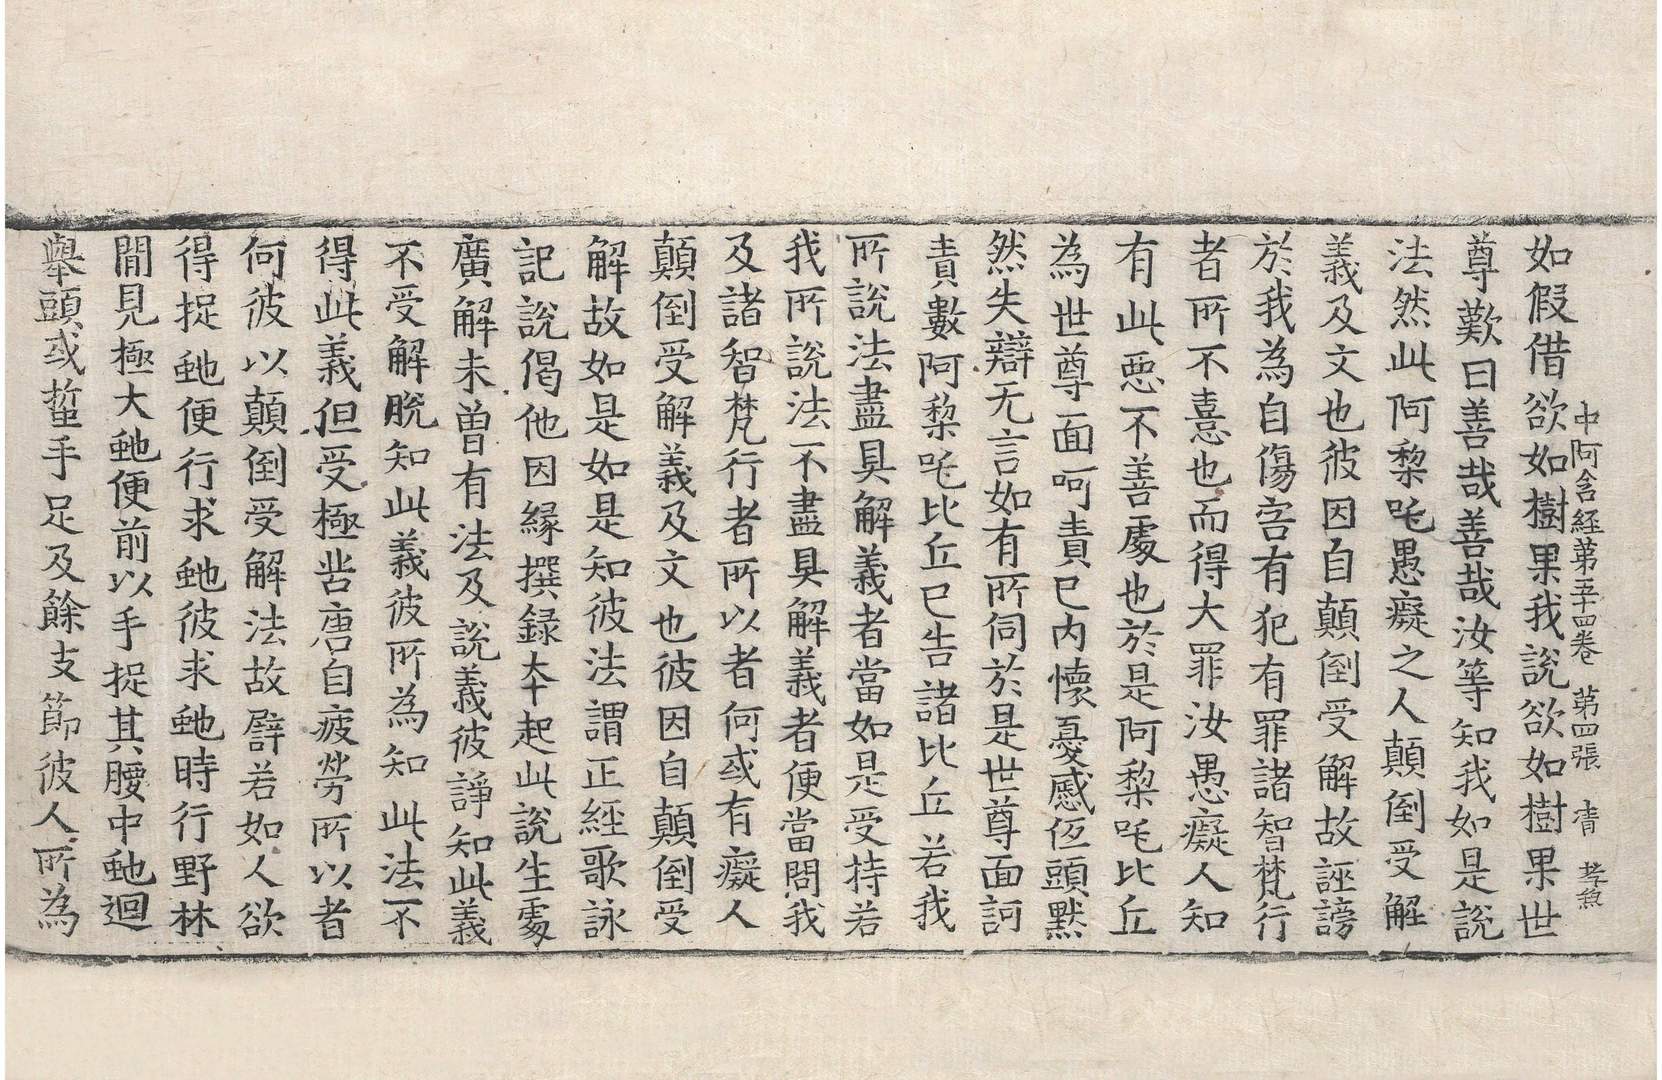 中阿含経第五十四卷 第四張 清
如假借欲如樹果我說欲如樹果世
尊歎曰善哉善哉汝等知我如是說
法然此阿黎吒愚癡之人顛倒受解
義及文也彼因自顛倒受解故誣謗
於我為自傷害有犯有罪諸智梵行
者所不憙也而得大罪汝愚癡人知
有此惡不善處也於是阿黎吒比丘
為世尊面呵責已內懷憂慼伍頭默
然失辯无言如有所伺於是世尊面訶
責數阿黎吒比丘已告諸比丘若我
所說法盡具解義者當如是受持若
我所說法不盡具解義者便當問我
及諸智梵行者所以者何或有癡人
顛倒受解義及文也彼因自顛倒受
解故如是如是知彼法謂正經歌詠
記說偈他因緣撰錄本起此說生處
廣解未曾有法及說義彼諍知此義
不受解脫知此義彼所為知此法不
得此義但受極苦唐自疲勞所以者
何彼以顛倒受解法故譬若如人欲
得捉虵便行求虵彼求虵時行野林
間見極大虵便前以手捉其腰中虵迴
舉頭或蜇手足及餘支節彼人所為